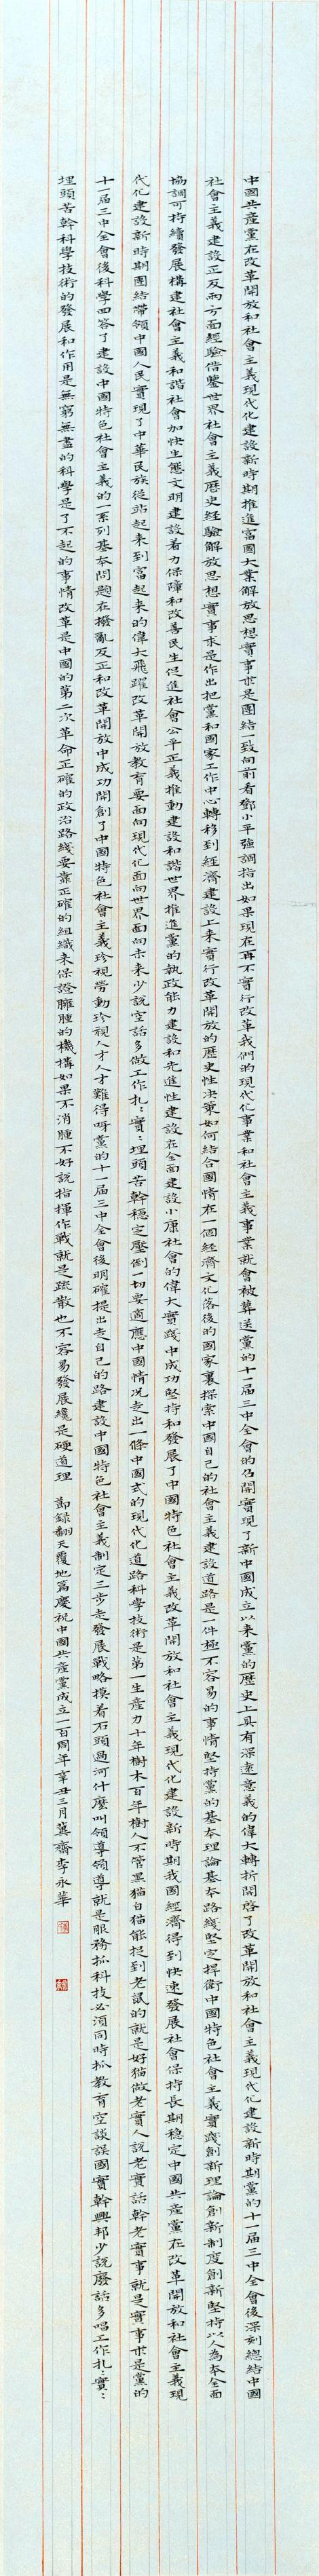 中國共產黨在改革開放和社會主義現代化建設新時期推進富國大業解放思想實事求是團結一致向前看鄧小平強調指出如果現在再不實行改革我們的現代化事業和社會主義事業就會被葬送黨的十一屆三中全會的召開實現了新中國成立以來黨的歷史上具有深遠意義的偉大轉折開啓了改革開放和社會主義現代化建設新時期黨的十一屆三中全會後深刻總結中國
社會主義建設正反兩方面經驗借鑒世界社會主義歷史經驗解放思想實事求是作出把黨和國家工作中心轉移到經濟建設上來實行改革開放的歷史性決策如何結合國情在一個經濟文化落後的國家裏探索中國自己的社會主義建設道路是一件極不容易的事情堅持黨的基本理論基本路綫堅定捍衛中國特色社會主義實踐創新理論創新制度創新堅持以人為本全面
協調可持續發展構建社會主義和諧社會加快生態文明建設着力保障和改善民生促進社會公平正義推動建設和諧世界推進黨的執政能力建設和先進性建設在全面建設小康社會的偉大實踐中成功堅持和發展了中國特色社會主義改革開放和社會主義現代化建設新時期我國經濟得到快速發展社會保持長期穩定中國共產黨在改革開放和社會主義現
代化建設新時期團結帶領中國人民實現了中華民族從站起來到富起來的偉大飛躍改革開放教育要面向現代化面向世界面向未來少說空話多做工作扎:實:埋頭苦幹穩定壓倒一切要適應中國情況走出一條中國式的現代化道路科學技術是第一生產力十年樹木百年樹人不管黑猫白猫能捉到老鼠的就是好猫做老實人說老實話幹老實事就是實事求是黨的
十一屆三中全會後科學回答了建設中國特色社會主義的一系列基本問題在撥亂反正和改革開放中成功開創了中國特色社會主義珍視勞動珍視人才人才難得呀黨的十一屆三中全會後明確提出走自己的路建設中國特色社會主義制定三步走發展戰略摸着石頭過河什麼叫領導領導就是服務抓科技必須同時抓教育空談誤國實幹興邦少說廢話多唱工作扎:實:
埋頭苦幹科學技術的發展和作用是無窮無盡的科學是了不起的事情改革是中國的第二次革命正確的政治路綫要靠正確的組織來保證臃腫的機構如果不消腫不好說指揮作戰就是疏散也不容易發展纔是硬道理 節錄翻天覆地篇慶祝中國共產黨成立一百周年辛丑三月冀齋李永華